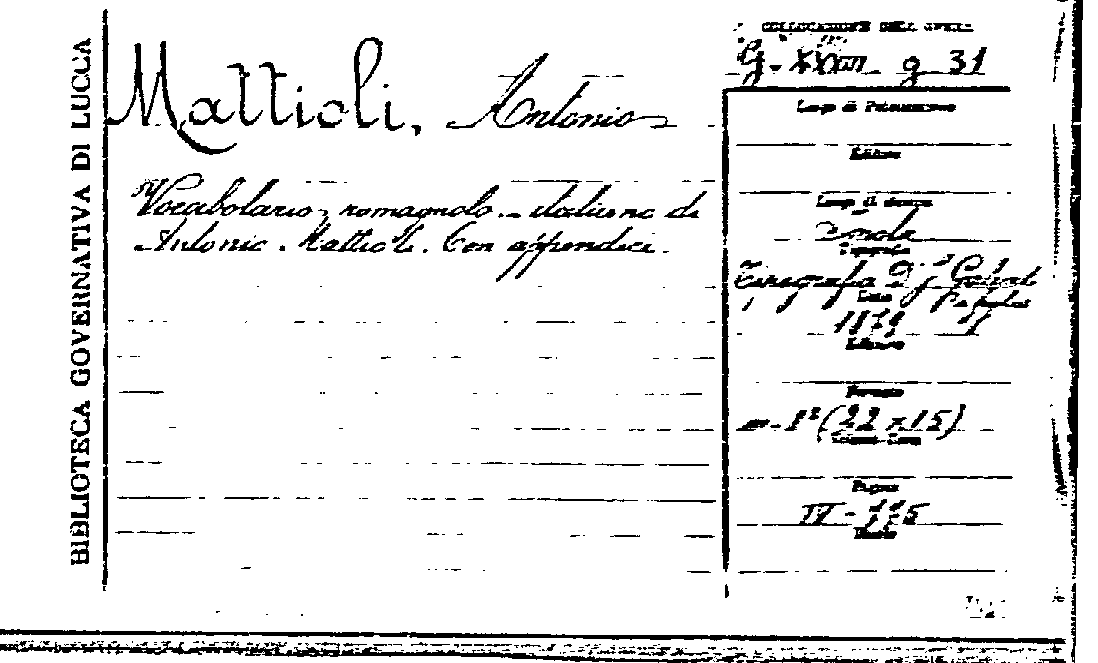 BIBLIOTECA GOVERNATIVA DI LUCCA
Mattioli, Antonio
Vocabolario romagnolo-italiano di
Antonio Mattioli. Con appendice.
COLLOCAZIONE DELL'OPERA
g 31
Luogo di Pubblicazione
Editore
Luogo di stampa
Imola
Tipografia
Tipografia D'I. Galeati
Data
1879
Edizione
Formato
(22 x 15)
Pagine